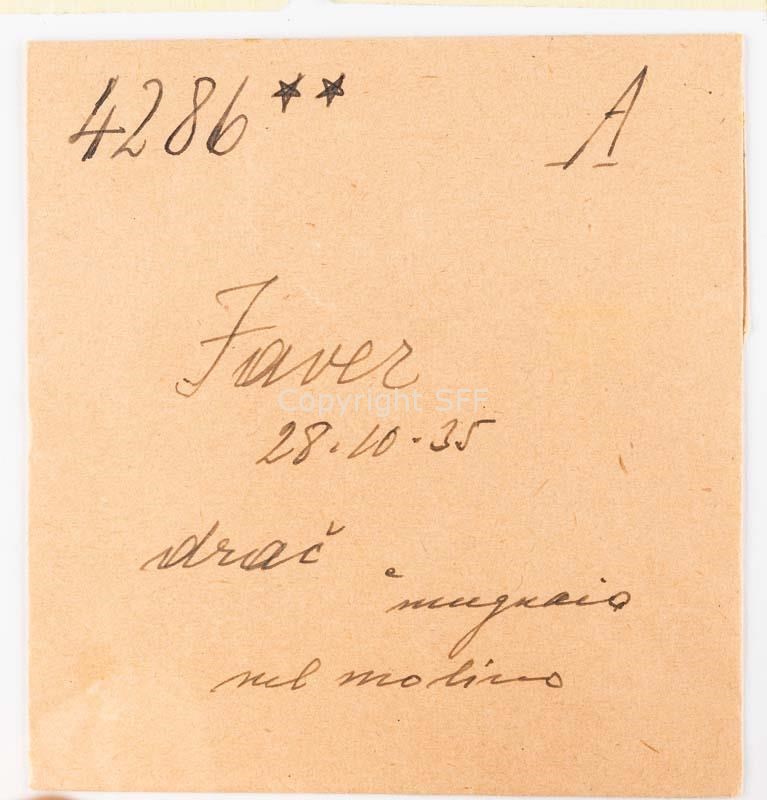 4286** A
Faver
Copyright SFF
28.10.35
drač
e mugnaio
nel molino